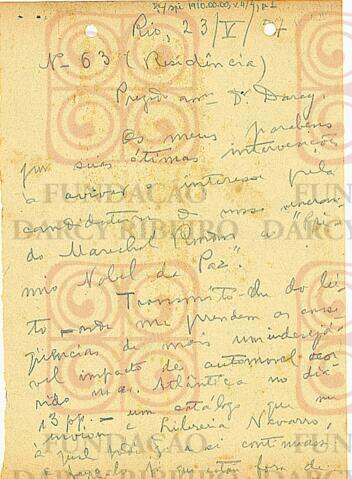 Rio, 23/V/57
Nº 63 (Residência)
Prezado amº Dr. Darcy,
Os meus parabens
por suas ótimas intervenções
a avivar o interesse pela
candidatura do nosso veneran-
do Marechal Rondon a "Prê-
mio Nobel da Paz".
Transmito-lhe do lei-
to – onde me prendem as conse-
quências de mais um indesejá-
vel impacto de automovel ocor-
rido na Av. Atlântica no dia
13 pp. – um catálogo que me
enviou a Livraria Navarro,
à qual
e faze-lo, p. que estou fora de
FUNDAÇÃO
DARCY RIBEIRO
FUNDAÇÃO
DARCY RIBEIRO